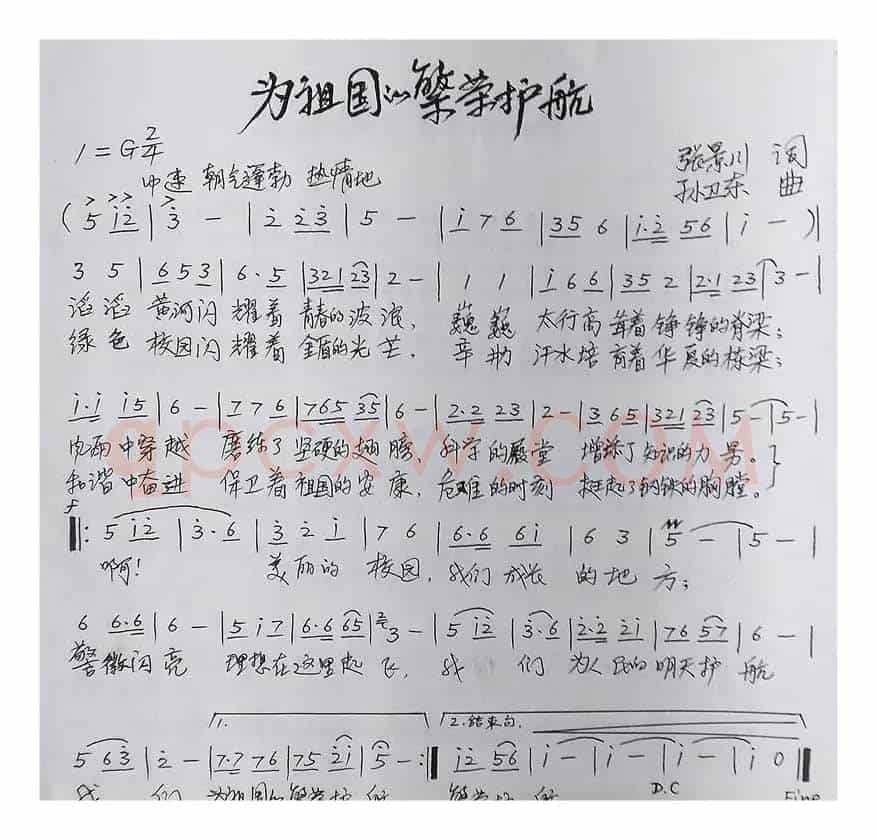 为祖国的繁荣护航
1=G 2/4
张景川 词
中速 朝气蓬勃 热情地
孙卫东 曲
( 5 i2 | 3 - | 2 23 | 5 - | i 7 6 | 35 6 | i·2 56 | i - ) |
3 5 | 6 5 3 | 6·5 | 321 23 | 2 - | 1 1 | i 6 6 | 35 2 | 2·1 23 | 3 - |
滔滔 黄河闪耀着 青春的波浪, 巍巍 太行高耸着铮铮的脊梁;
绿色 校园闪耀着 金盾的光芒, 辛勤 汗水培育着华夏的栋梁;
i·i i5 | 6 - | 7 7 6 | 765 35 | 6 - | 2·2 23 | 2 - | 3 6 5 | 321 23 | 5 - | 5 - |
风雨中穿越 磨练了坚硬的翅膀, 科学的殿堂 增添了知识的力量。
和谐中奋进 保卫着祖国的安康, 危难的时刻 挺起了钢铁的胸膛。
f
‖: 5 i2 | 3·6 | 3 2 i | 7 6 | 6·6 6i | 6 3 | 5 - | 5 - |
啊! 美丽的 校园, 我们成长 的地方;
6 6·6 | 6 - | 5 i 7 | 6·6 65 | 2 3 - | 5 i2 | 3·6 | 2·2 2i | 76 57 | 6 - |
警徽闪亮 理想在这里起飞, 我们 为人民的明天护航
1. 2.结束句.
5 63 | 2 - | 7·7 76 | 75 2i | 5 - :‖ i2 56 | i - | i - | i - | i 0 ‖
D.C
我们 为祖国的繁荣护航 繁荣护航 Fine
qpcxw.COM